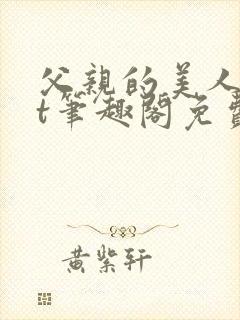 父亲的美人
t笔趣阁免费
黄紫轩